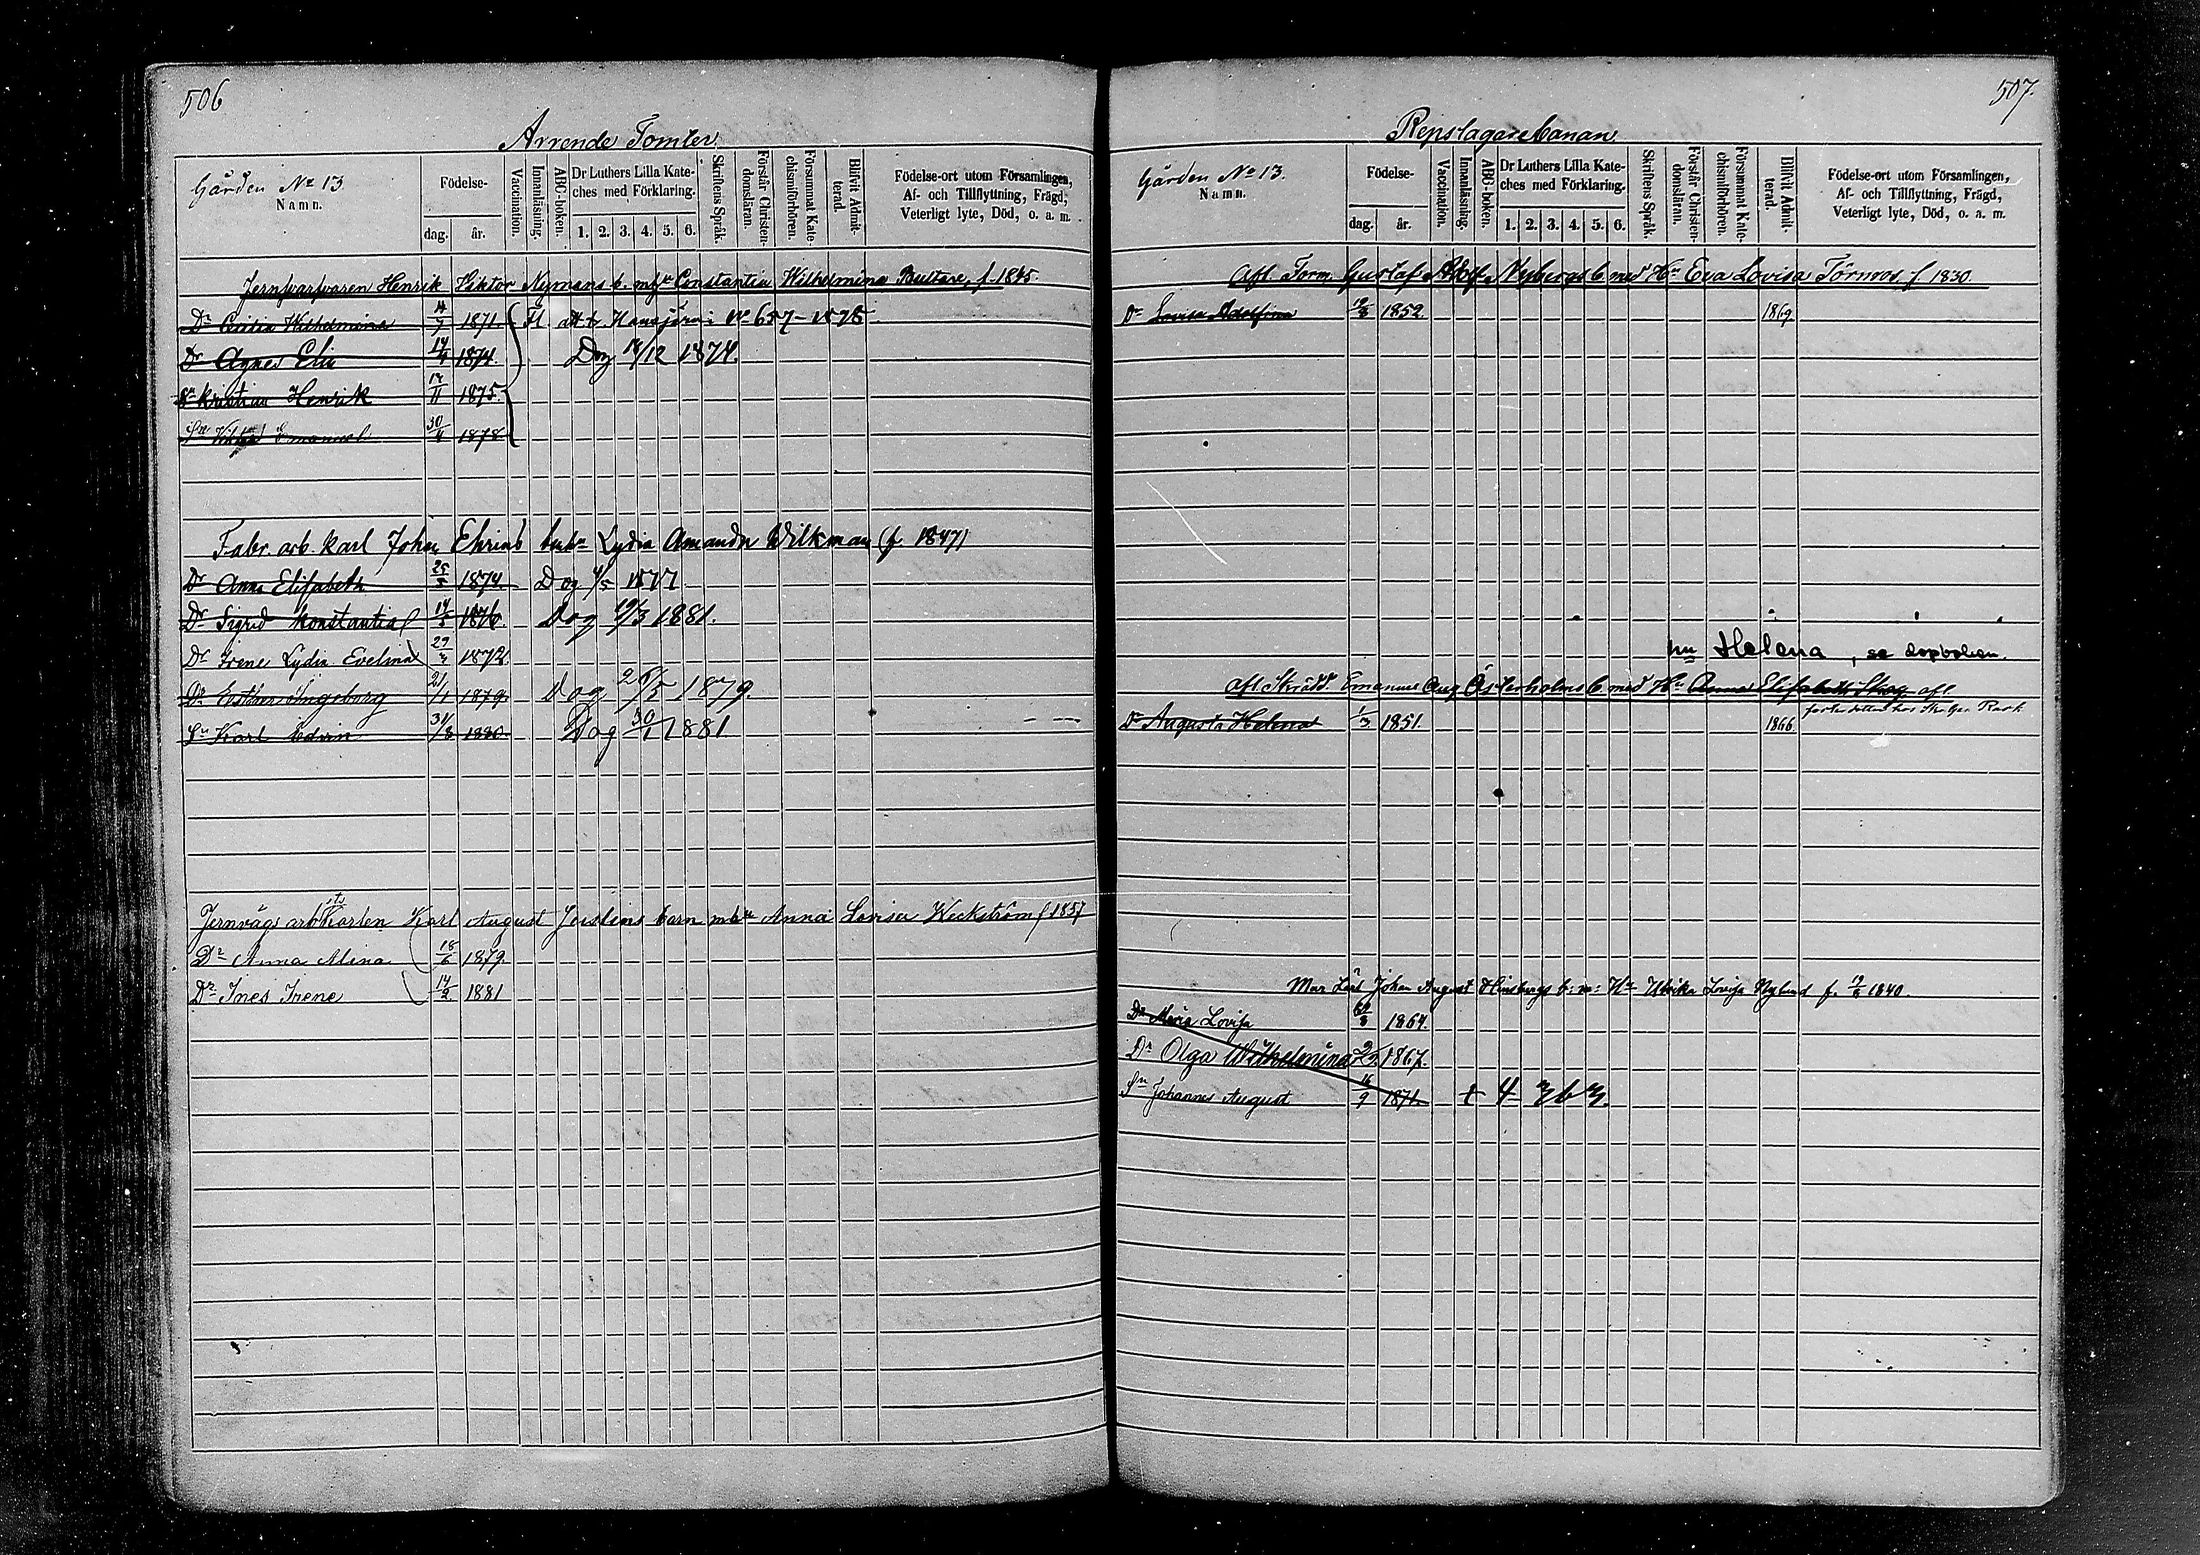 506
Arrende Tomter
Gården No 13
Namn.
Födelse-
dag.
år.
Vaccination.
Innanläsning.
ABC-boken.
Dr Luthers Lilla Kate-
ches med Förklaring.
1. 2. 3. 4. 5. 6.
Skriftens Språk.
Förstår Christen-
domsläran.
Försummat Kate-
chismiförhören.
Blifvit Admit-
terad.
Födelse-ort utom Församlingen,
Af- och Tillflyttning, Frägd,
Veterligt lyte, Död, o. a. m.
Henrik Viktor Nymans b. Constantia Wilhelmina f. 1845
Dr Cecilia Wilhelmina 1871. 657 - 1878
Dr Agnes Elin 1874. Dog 1874.
Sn Kristian Henrik 17/11 1875.
Sn Emanuel 1878
Fabr. arb. Karl Johan Lydia Amanda Wilkman (f. 1847)
Dr Anna Elisabeth 25/5 1874. Dog 1877
Dr Sigrid Konstantia 1876. Dog 19/3 1881.
Dr Irene Lydia Evelina 1872.
Dr Esther Ingeborg 21/1 1879. Dog 1879.
Sn Karl Edvin 31/8 1880. Dog 30/1 1881
Jernvägs arb Karl August Justens barn Anna Lovisa Weckström f 1857
Dr Anna Alina 18/6 1879.
Dr Ines Irene 14/2 1881
507.
Repslagarebanan.
Gården No 13.
Namn.
Födelse-
dag.
år.
Vaccination.
Innanläsning.
ABC-boken.
Dr Luthers Lilla Kate-
ches med Förklaring.
1. 2. 3. 4. 5. 6.
Skriftens Språk.
Förstår Christen-
domsläran.
Försummat Kate-
chismiförhören.
Blifvit Admit-
terad.
Födelse-ort utom Församlingen,
Af- och Tillflyttning, Frägd,
Veterligt lyte, Död, o. a. m.
Afl. Form. Gustaf Adolf Nybergs b med Hu Eva Lovisa Törnroos. f 1830.
Dr Lovisa Adolfina 1852. 1869
Helena, se dopboken.
Afl. Skrädd. Emanuel Aug Österholms b med Hu Anna Elisabeth afl.
Dr Augusta Helena 1/3 1851. 1866.
Johan August b: m: Hu Ulrika Lovisa Nylund f. 1840.
Dr Maria Lovisa 1864.
Dr Olga Wilhelmina 1867.
Sn Johannes August 16/9 1871.